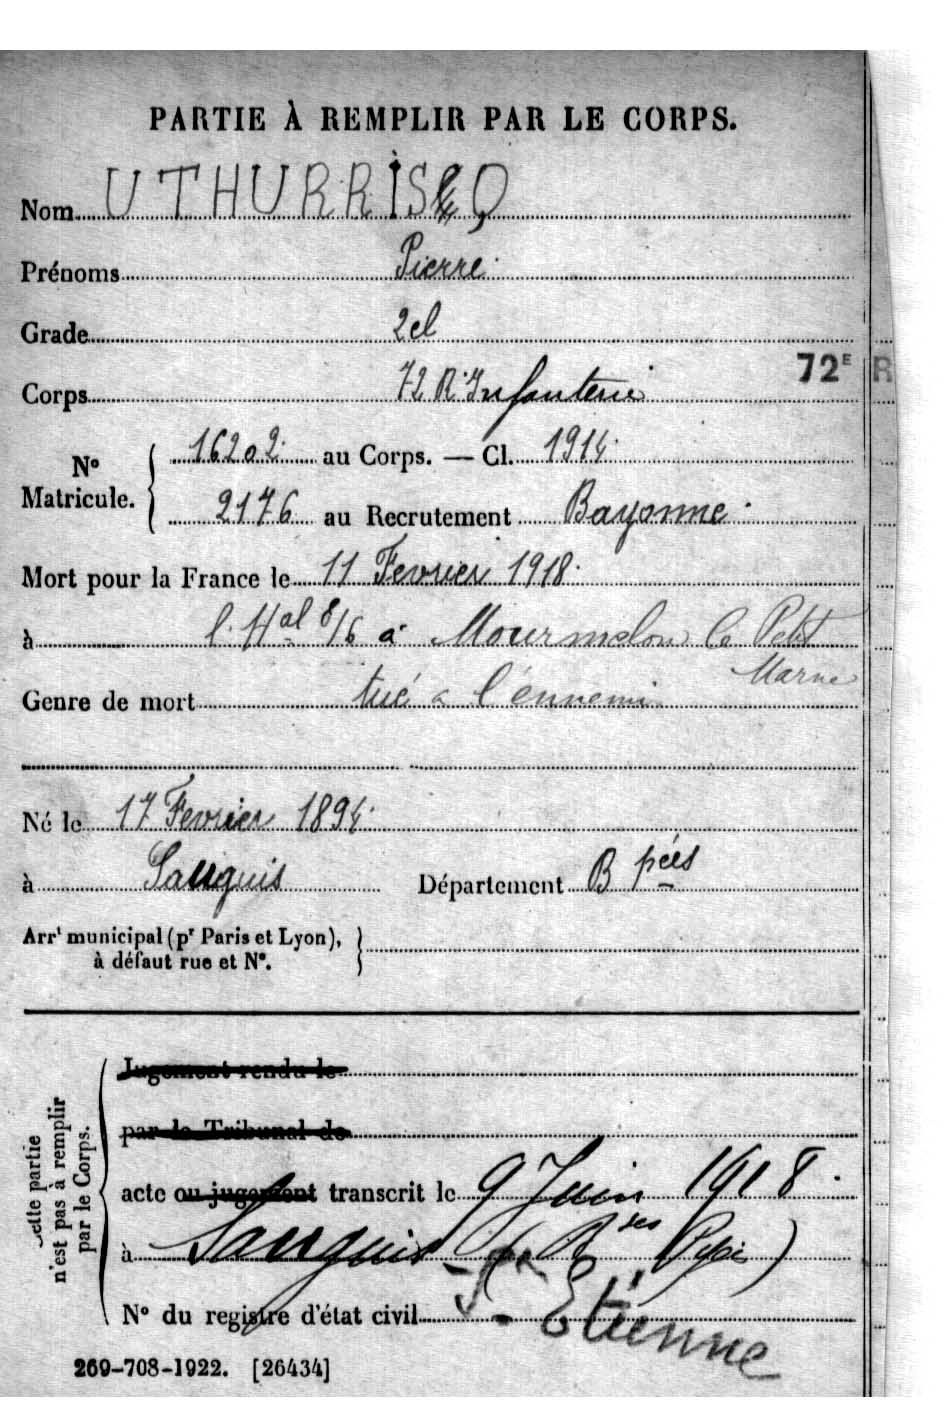 PARTIE À REMPLIR PAR LE CORPS.
Nom UTHURRISQ
Prénoms Pierre
Grade 2cl
72E R
Corps 72 R. Infanterie
No Matricule. 16202 au Corps. — Cl. 1914
2176 au Recrutement Bayonne
Mort pour la France le 11 Fevrier 1918
à l. Hal 8/6 a Mourmelon le Petit
Marne
Genre de mort tué a l'ennemi
Né le 17 Fevrier 1894
à Sauguis Département B pées
Arrt municipal (pr Paris et Lyon),
à défaut rue et No.
Cette partie
n'est pas à remplir
par le Corps.
Jugement rendu le
par le Tribunal de
acte ou jugement transcrit le 9 Juin 1918.
à Sauguis (Bses Pyr)
- St - Etienne
No du registre d'état civil
269-708-1922. [26434]